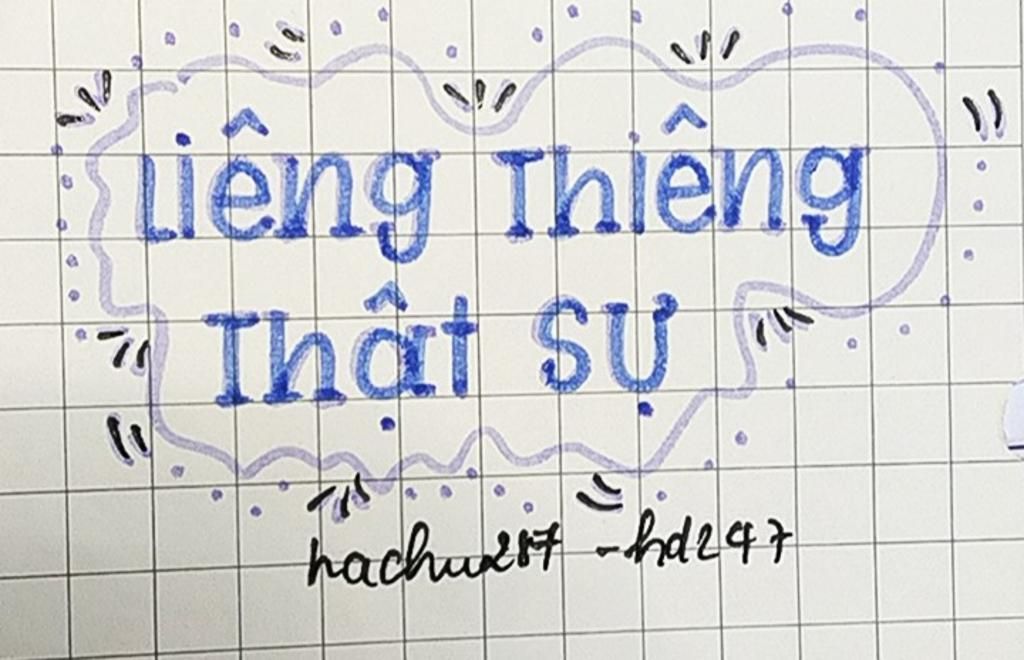 Liêng Thiêng
Thật Sự
hachu287 - hd247